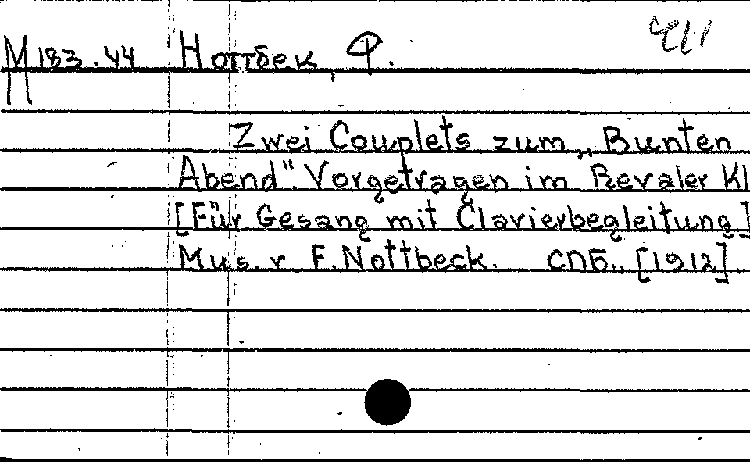 М 183.44 Ноттбек, Ф.
Zwei Couplets zum „Bunten
Abend" Vorgetragen im Revaler Kl
[Für Gesang mit Clavierbegleitung]
Mus. v. F. Nottbeck. СПБ., [1912]